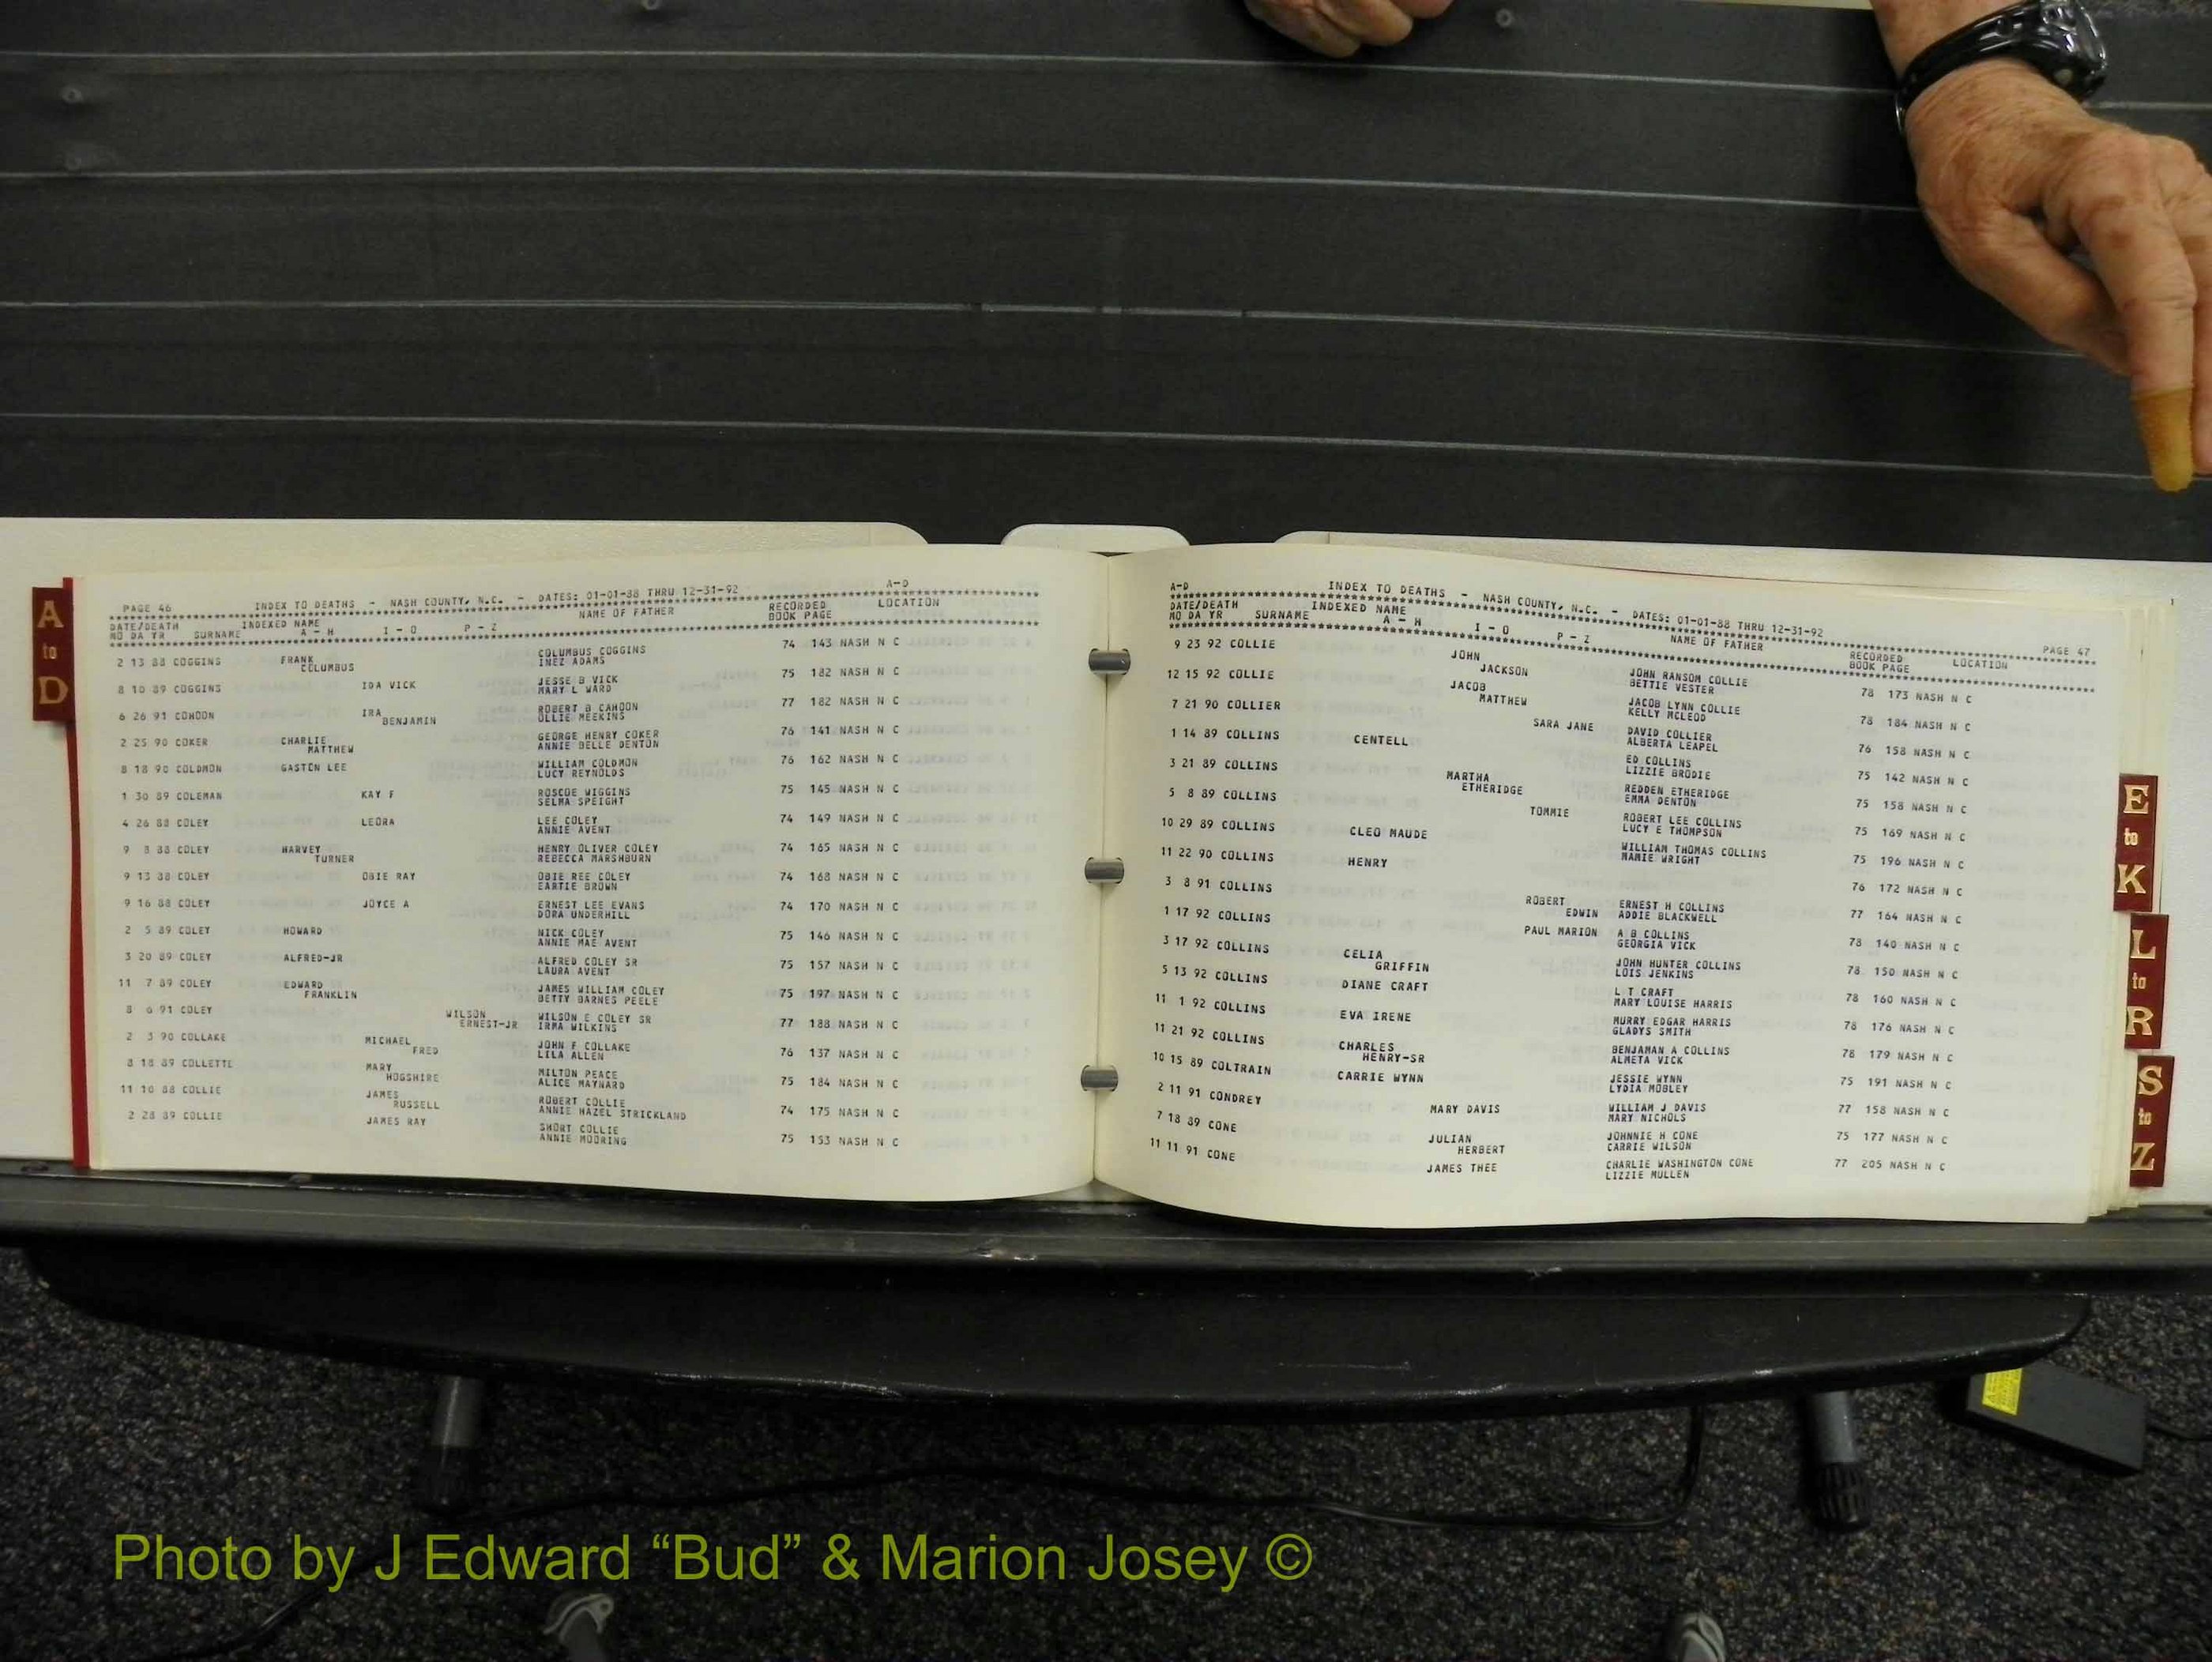 A
to
D
PAGE 46 INDEX TO DEATHS - NASH COUNTY, N.C. - DATES: 01-01-88 THRU 12-31-92 A-D
DATE/DEATH INDEXED NAME NAME OF FATHER RECORDED LOCATION
MO DA YR SURNAME A - H I - O P - Z BOOK PAGE
2 13 88 COGGINS FRANK COLUMBUS COGGINS 74 143 NASH N C
COLUMBUS INEZ ADAMS
8 10 89 COGGINS IDA VICK JESSE B VICK 75 182 NASH N C
MARY L WARD
6 26 91 COHOON IRA ROBERT B CAHOON 77 182 NASH N C
BENJAMIN OLLIE MEEKINS
2 25 90 COKER CHARLIE GEORGE HENRY COKER 76 141 NASH N C
MATTHEW ANNIE BELLE DENTON
8 18 90 COLDMON GASTON LEE WILLIAM COLDMON 76 162 NASH N C
LUCY REYNOLDS
1 30 89 COLEMAN KAY F ROSCOE WIGGINS 75 145 NASH N C
SELMA SPEIGHT
4 26 88 COLEY LEORA LEE COLEY 74 149 NASH N C
ANNIE AVENT
9 8 88 COLEY HARVEY HENRY OLIVER COLEY 74 165 NASH N C
TURNER REBECCA MARSHBURN
9 13 88 COLEY OBIE RAY OBIE REE COLEY 74 168 NASH N C
EARTIE BROWN
9 16 88 COLEY JOYCE A ERNEST LEE EVANS 74 170 NASH N C
DORA UNDERHILL
2 5 89 COLEY HOWARD NICK COLEY 75 146 NASH N C
ANNIE MAE AVENT
3 20 89 COLEY ALFRED-JR ALFRED COLEY SR 75 157 NASH N C
LAURA AVENT
11 7 89 COLEY EDWARD JAMES WILLIAM COLEY 75 197 NASH N C
FRANKLIN BETTY BARNES PEELE
8 6 91 COLEY WILSON WILSON E COLEY SR 77 188 NASH N C
ERNEST-JR IRMA WILKINS
2 3 90 COLLAKE MICHAEL JOHN F COLLAKE 76 137 NASH N C
FRED LILA ALLEN
8 18 89 COLLETTE MARY MILTON PEACE 75 184 NASH N C
HOGSHIRE ALICE MAYNARD
11 10 88 COLLIE JAMES ROBERT COLLIE 74 175 NASH N C
RUSSELL ANNIE HAZEL STRICKLAND
2 28 89 COLLIE JAMES RAY SHORT COLLIE 75 153 NASH N C
ANNIE MOORING
A-D INDEX TO DEATHS - NASH COUNTY, N.C. - DATES: 01-01-88 THRU 12-31-92 PAGE 47
DATE/DEATH INDEXED NAME NAME OF FATHER RECORDED LOCATION
MO DA YR SURNAME A - H I - O P - Z BOOK PAGE
9 23 92 COLLIE JOHN JOHN RANSOM COLLIE 78 173 NASH N C
JACKSON BETTIE VESTER
12 15 92 COLLIE JACOB JACOB LYNN COLLIE 78 184 NASH N C
MATTHEW KELLY MCLEOD
7 21 90 COLLIER SARA JANE DAVID COLLIER 76 158 NASH N C
ALBERTA LEAPEL
1 14 89 COLLINS CENTELL ED COLLINS 75 142 NASH N C
LIZZIE BRODIE
3 21 89 COLLINS MARTHA REDDEN ETHERIDGE 75 158 NASH N C
ETHERIDGE EMMA DENTON
5 8 89 COLLINS TOMMIE ROBERT LEE COLLINS 75 169 NASH N C
LUCY E THOMPSON
10 29 89 COLLINS CLEO MAUDE WILLIAM THOMAS COLLINS 75 196 NASH N C
MAMIE WRIGHT
11 22 90 COLLINS HENRY 76 172 NASH N C
3 8 91 COLLINS ROBERT ERNEST H COLLINS 77 164 NASH N C
EDWIN ADDIE BLACKWELL
1 17 92 COLLINS PAUL MARION A B COLLINS 78 140 NASH N C
GEORGIA VICK
3 17 92 COLLINS CELIA JOHN HUNTER COLLINS 78 150 NASH N C
GRIFFIN LOIS JENKINS
5 13 92 COLLINS DIANE CRAFT L T CRAFT 78 160 NASH N C
MARY LOUISE HARRIS
11 1 92 COLLINS EVA IRENE MURRY EDGAR HARRIS 78 176 NASH N C
GLADYS SMITH
11 21 92 COLLINS CHARLES BENJAMAN A COLLINS 78 179 NASH N C
HENRY-SR ALMETA VICK
10 15 89 COLTRAIN CARRIE WYNN JESSIE WYNN 75 191 NASH N C
LYDIA MOBLEY
2 11 91 CONDREY MARY DAVIS WILLIAM J DAVIS 77 158 NASH N C
MARY NICHOLS
7 18 89 CONE JULIAN JOHNNIE H CONE 75 177 NASH N C
HERBERT CARRIE WILSON
11 11 91 CONE JAMES THEE CHARLIE WASHINGTON CONE 77 205 NASH N C
LIZZIE MULLEN
E
to
K
L
to
R
S
to
Z
Photo by J Edward “Bud” & Marion Josey ©